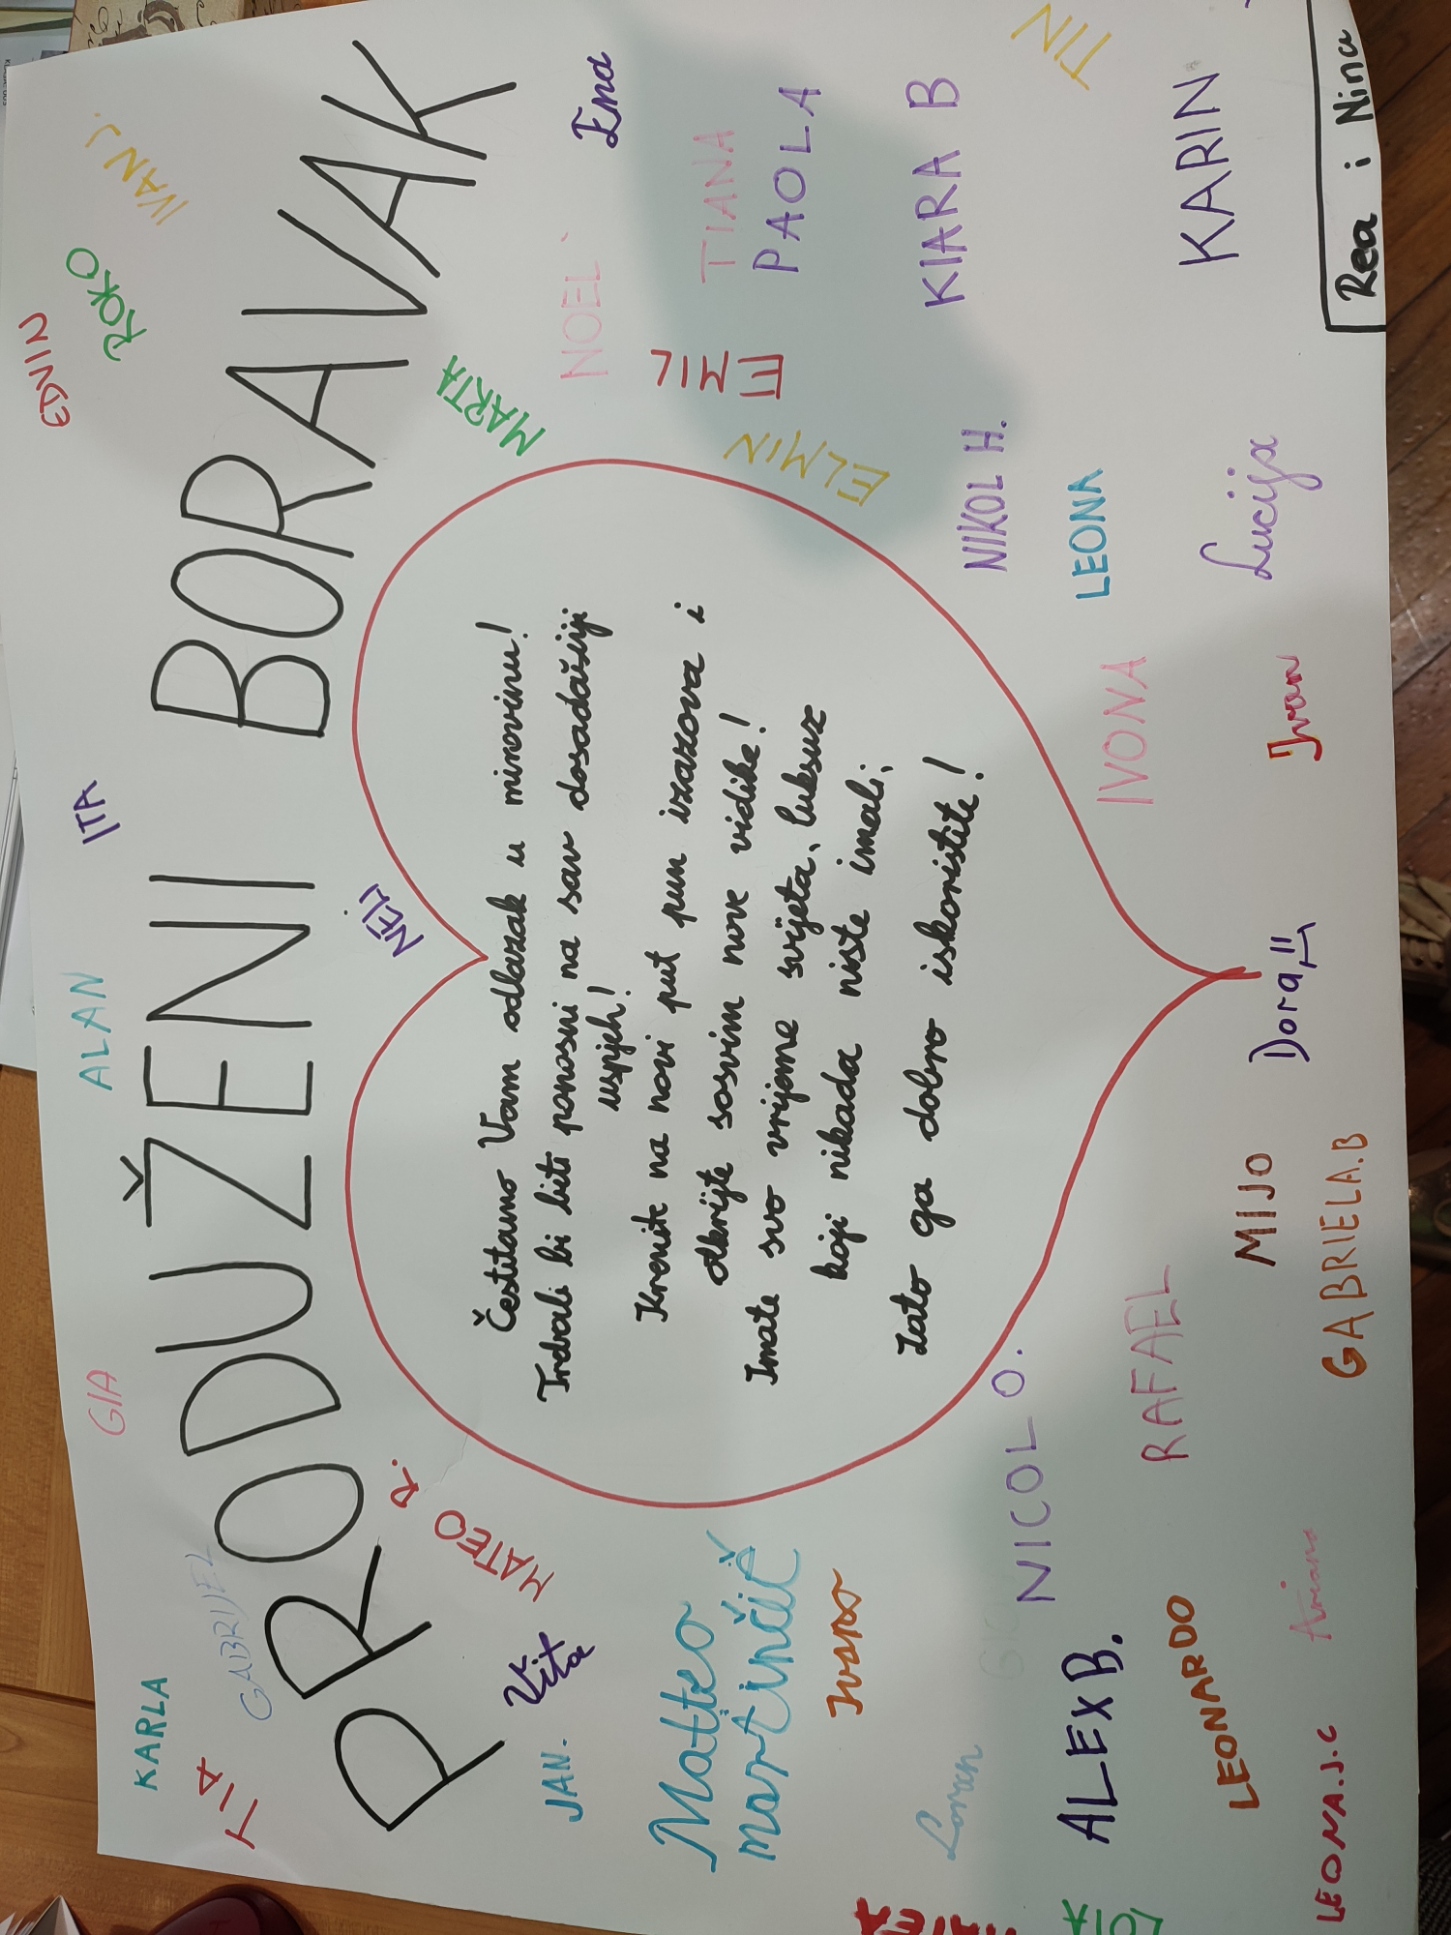 PRODUŽENI BORAVAK
Čestitamo Vam odlazak u mirovinu!
Trebali bi biti ponosni na sav dosadašnji
uspjeh!
Krenite na novi put pun izazova i
otkrijte sasvim nove vidike!
Imate svo vrijeme svijeta, luksuz
koji nikada niste imali,
zato ga dobro iskoristite!
KARLA
TIA
GABRIJEL
GIA
ALAN
ITA
EDVIN
ROKO
IVAN J.
NELI
MATEO R.
Vita
JAN.
Matteo
martinčić
Ivano
MARTA
Ena
NOEL
TIANA
PAOLA
EMIL
ELMIN
KIARA B
TIN
KARIN
NIKOL H.
LEONA
Lucija
IVONA
Ivan
Dora
MIJO
GABRIELA.B
RAFAEL
NICOL O.
Loren
ALEX B.
LEONARDO
LEONA.J.C
Rea i Nina